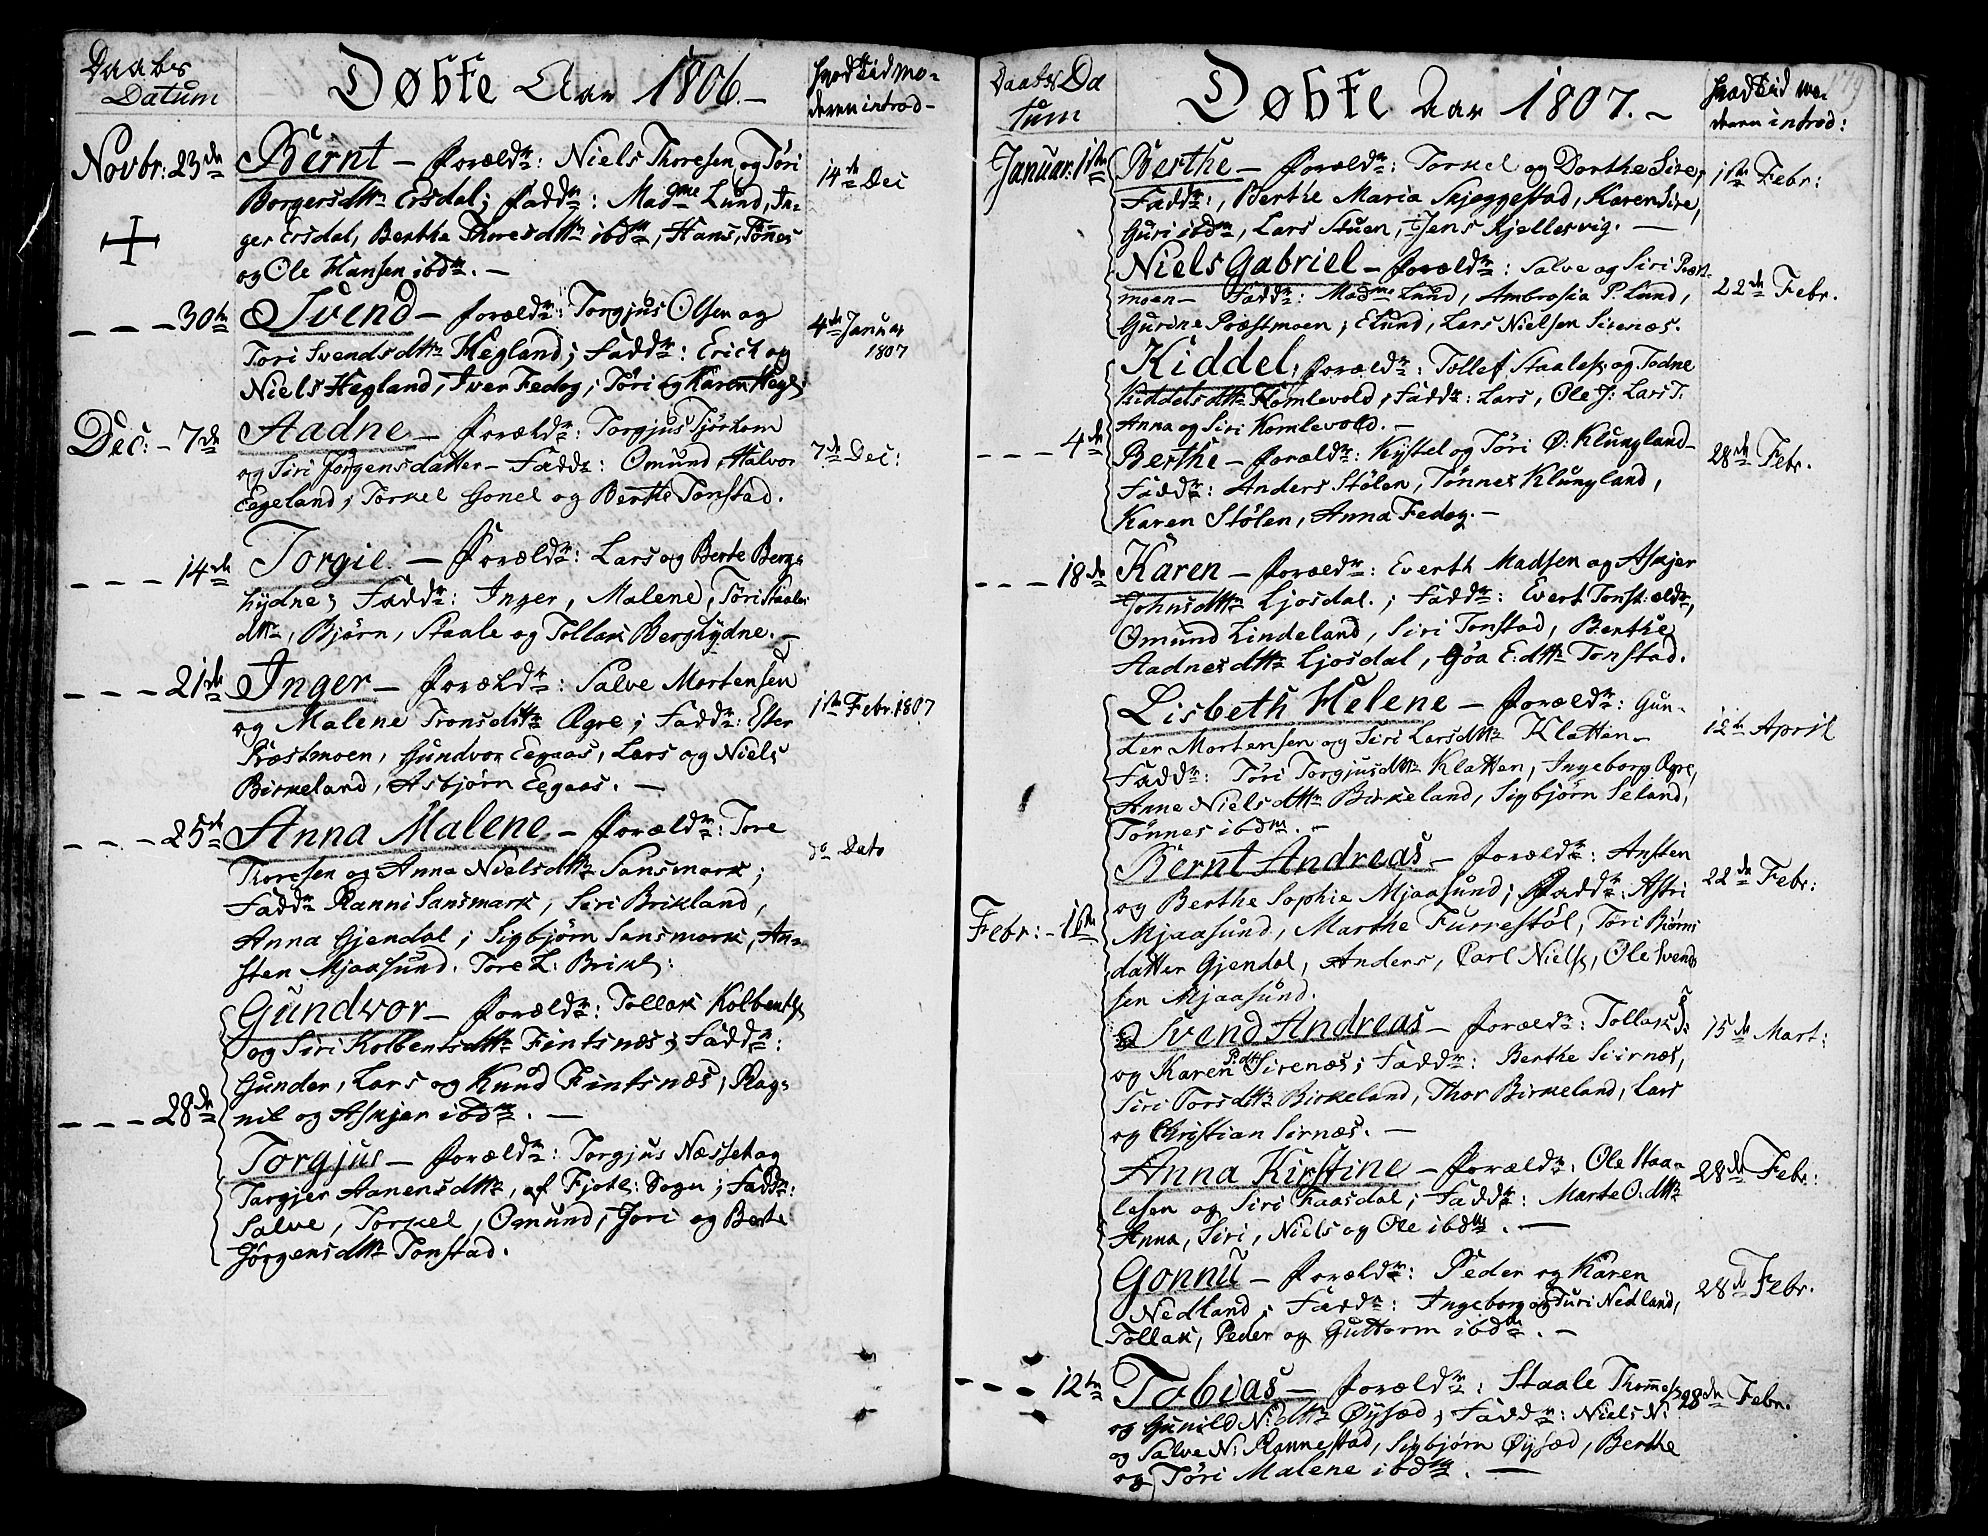 Daabs
Datum
Døbte Aar 1806.-
hvad tid mo-
deren introd-
Novbr: 23de
Bernt - forældr: Niels Thoresen og Töri
Borgersdttr Ersdal; faddr: Madme Lund, In-
ger Ersdal, Berthe Thoresdttr ibdm, Hans, Tönnes
og Ole Hansen ibdm. -
14de Dec
- - - 30te
Svend - forældr: Torgjus Olsen og
Tori Svendsdttr Hegland; Faddr: Erich og
Niels Hegland, Iver Fedog, Töri og Karen Hegl:
4de Januar
1807
Dec: - 7de
Aadne - forældr: Torgjus Tjörhom
og Siri Jörgensdatter - Faddr: Omund, Halvor
Eegeland, Torkel Gonel og Berthe Tonstad.
7de Dec:
- - - 14de
Torgie. - Forældr: Lars og Berte Berg-
hydne; Faddr: Inger, Malene, Töri Staales
dttr, Bjørn, Staale og Tollak Berghydne. -
- - - 21de
Inger - forældr: Salve Mortensen
og Malene Tronsdttr Ægre; Faddr: Ester
Præstmoen, Gundvor Eegaas, Lars og Niels
Birkeland, Asbjørn Eegaas. -
1ste Febr. 1807
- - - 25de
Anna Malene - forældr: Tore
Thoresen og Anna Nielsdttr Sansmark;
Faddr Ranni Sansmark, Siri Brikland,
Anna Gjendal; Sigbjörn Sansmark, An-
sten Mjaasund. Tore L: Brikl:
do Dato
Gundvor - forældr: Tollak Kolbents:
og Siri Kolbentsdttr Fintsnæs; Faddr:
Gunder, Lars og Knud Fintsnæs; Rag-
nil og Askjer ibdm. -
- - - 28de
Torgjus - forældr: Torgjus Næsset og
Torgjer Aanensdttr, af Fjotl: Sogn; Faddr:
Salve, Torkel, Omund, Jori og Berte
Jörgensdttr Tonstad.
Daabs Da
tum
Døbte Aar 1807.-
hvad tid mo-
deren introd:
179
Januar: 1ste
Berthe - forældr: Torkel og Dorthe Sire,
Faddr:, Berthe Maria Skjeggestad, Karen Sire,
Guri ibdm, Lars Stuen, Jens Kjellesvig. -
1ste Febr:
Niels Gabriel - forældr: Salve og Siri Præst-
moen - Faddr: Madme Lund, Ambrosia P. Lund,
Gurine Præstmoen; E Lund, Lars Nielsen Sirenæs.
22de Febr.
Kiddel, forældr: Tollef Staales: og Todne
Kiddelsdttr Homlevold; Faddr: Lars, Ole J: Lars T.
Anna og Siri Homlevold. -
- - - 4de
Berthe - forældr: Kystel og Töri Ø: Klungland -
Faddr: Anders Stölen, Tönnes Klungland,
Karen Stölen, Anna Fedog. -
28de Febr.
- - - 18de
Karen - forældr: Everth Madsen og Askjer
Johnsdttr Ljosdal. ; Faddr: Evert Tonst: ældr,
Omund Lindeland, Siri Tonstad, Berthe
Aadnesdttr Ljosdal, Göa E: dttr Tonstad.
Lisbeth Helene - forældr: Gun-
der Mortensen og Siri Larsdttr Klatten -
Faddr: Töri Torgjusdttr Klatten, Ingeborg Ægre,
Anne Nielsdttr Birkeland, Sigbjörn Seland,
Tönnes ibdm. -
12te April
Bernt Andreas - forældr: Ansten
og Berthe Sophie Mjaasund; Faddr: Astri
Mjaasund, Marthe Furrestöl, Töri Biörns
datter Gjendal, Anders, Carl Niels:, Ole Svend
sen Mjaasund.
22de Febr:
Febr: - 1ste
Svend Andreas - forældr: Tollak S:
og Karen P.dttr Sirenæs; Faddr: Berthe Siirnæs,
Siri Torsdttr Birkeland, Thor Birkeland, Lars
og Christian Sirnæs. -
15de Mart:
Anna Kirstine - forældr: Ole Staa-
lesen og Siri Faasdal; Faddr: Marte O. dttr
Anna, Siri, Niels og Ole ibdm. -
28de Febr:
Gonnil - forældr: Peder og Karen
Nedland; Faddr: Ingeborg og Turi Nedland,
Tollak, Peder og Guttorm ibdm. -
28de Febr.
- - - 12te
Tobias - forældr: Staale Thommes:
og Gunild N: dttr Øysæd; Faddr: Niels N:
og Salve N: Rannestad, Sigbjörn Øysæd, Berthe
og Töri Malene ibdm. -
28de Febr.